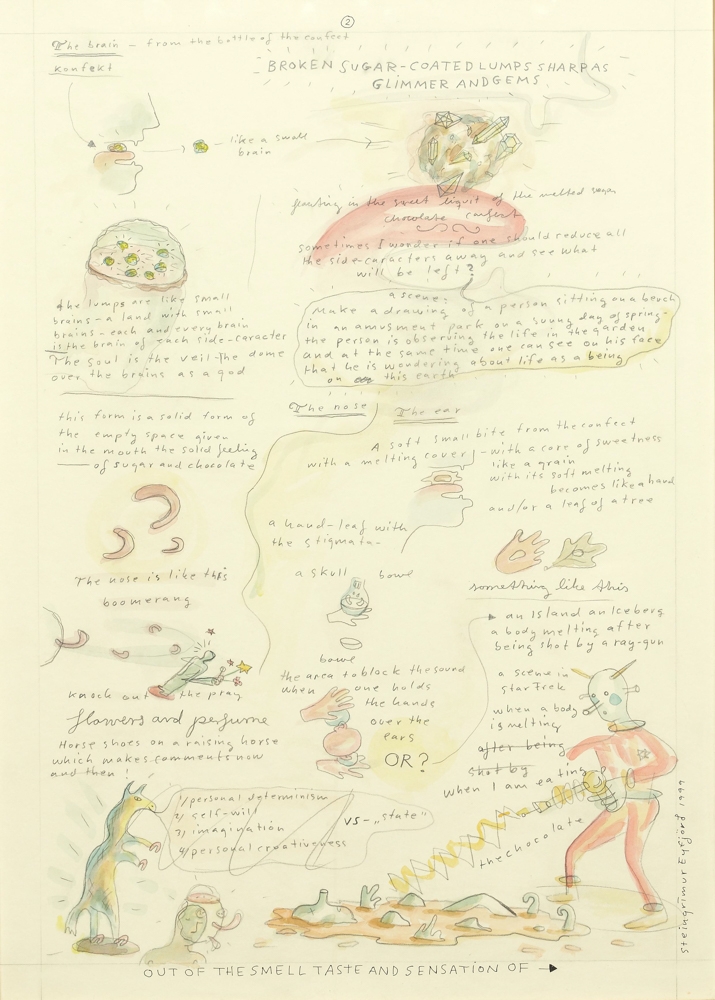 2
The brain – from the bottle of the confect
Konfekt
BROKEN SUGAR-COATED LUMPS SHARP AS
GLIMMER AND GEMS
like a small
brain
floating in the sweet liquit of the melted sugar
chocolate confect
sometimes I wonder if one should reduce all
the side-caracters away and see what
will be left?
a scene:
Make a drawing of a person sitting on a bench
in an amusment park on a sunny day of spring-
the person is observing the life in the garden
and at the same time one can see on his face
that he is wondering about life as a being
on this earth
the lumps are like small
brains – a land with small
brains – each and every brain
is the brain of each side-caracter
The soul is the veil-the dome
over the brains as a god
this form is a solid form of
the empty space given
in the mouth the solid feeling
of sugar and chocolate
The nose is like this
boomerang
knock out the pray
flowers and perfume
Horse shoes on a raising horse
which makes comments now
and then!
1/ personal determinism
2/ self-will
3/ imagination
4/ personal creativeness
VS- „state"
The nose
The ear
A soft small bite from the confect
with a melting cover – with a core of sweetness
like a grain
with its soft melting
becomes like a hand
and/or a leaf of a tree
a hand-leaf with
the stigmata-
a skull bowl
bowl
the area to block the sound
when one holds
the hands
over the
ears
OR?
something like this
an Island an Iceberg
a body melting after
being shot by a ray-gun
a scene in
StarTrek
when a body
is melting
after being
shot by
when I am eating
the chocolate
OUT OF THE SMELL TASTE AND SENSATION OF
Steingrimur Eyfjörd 1999